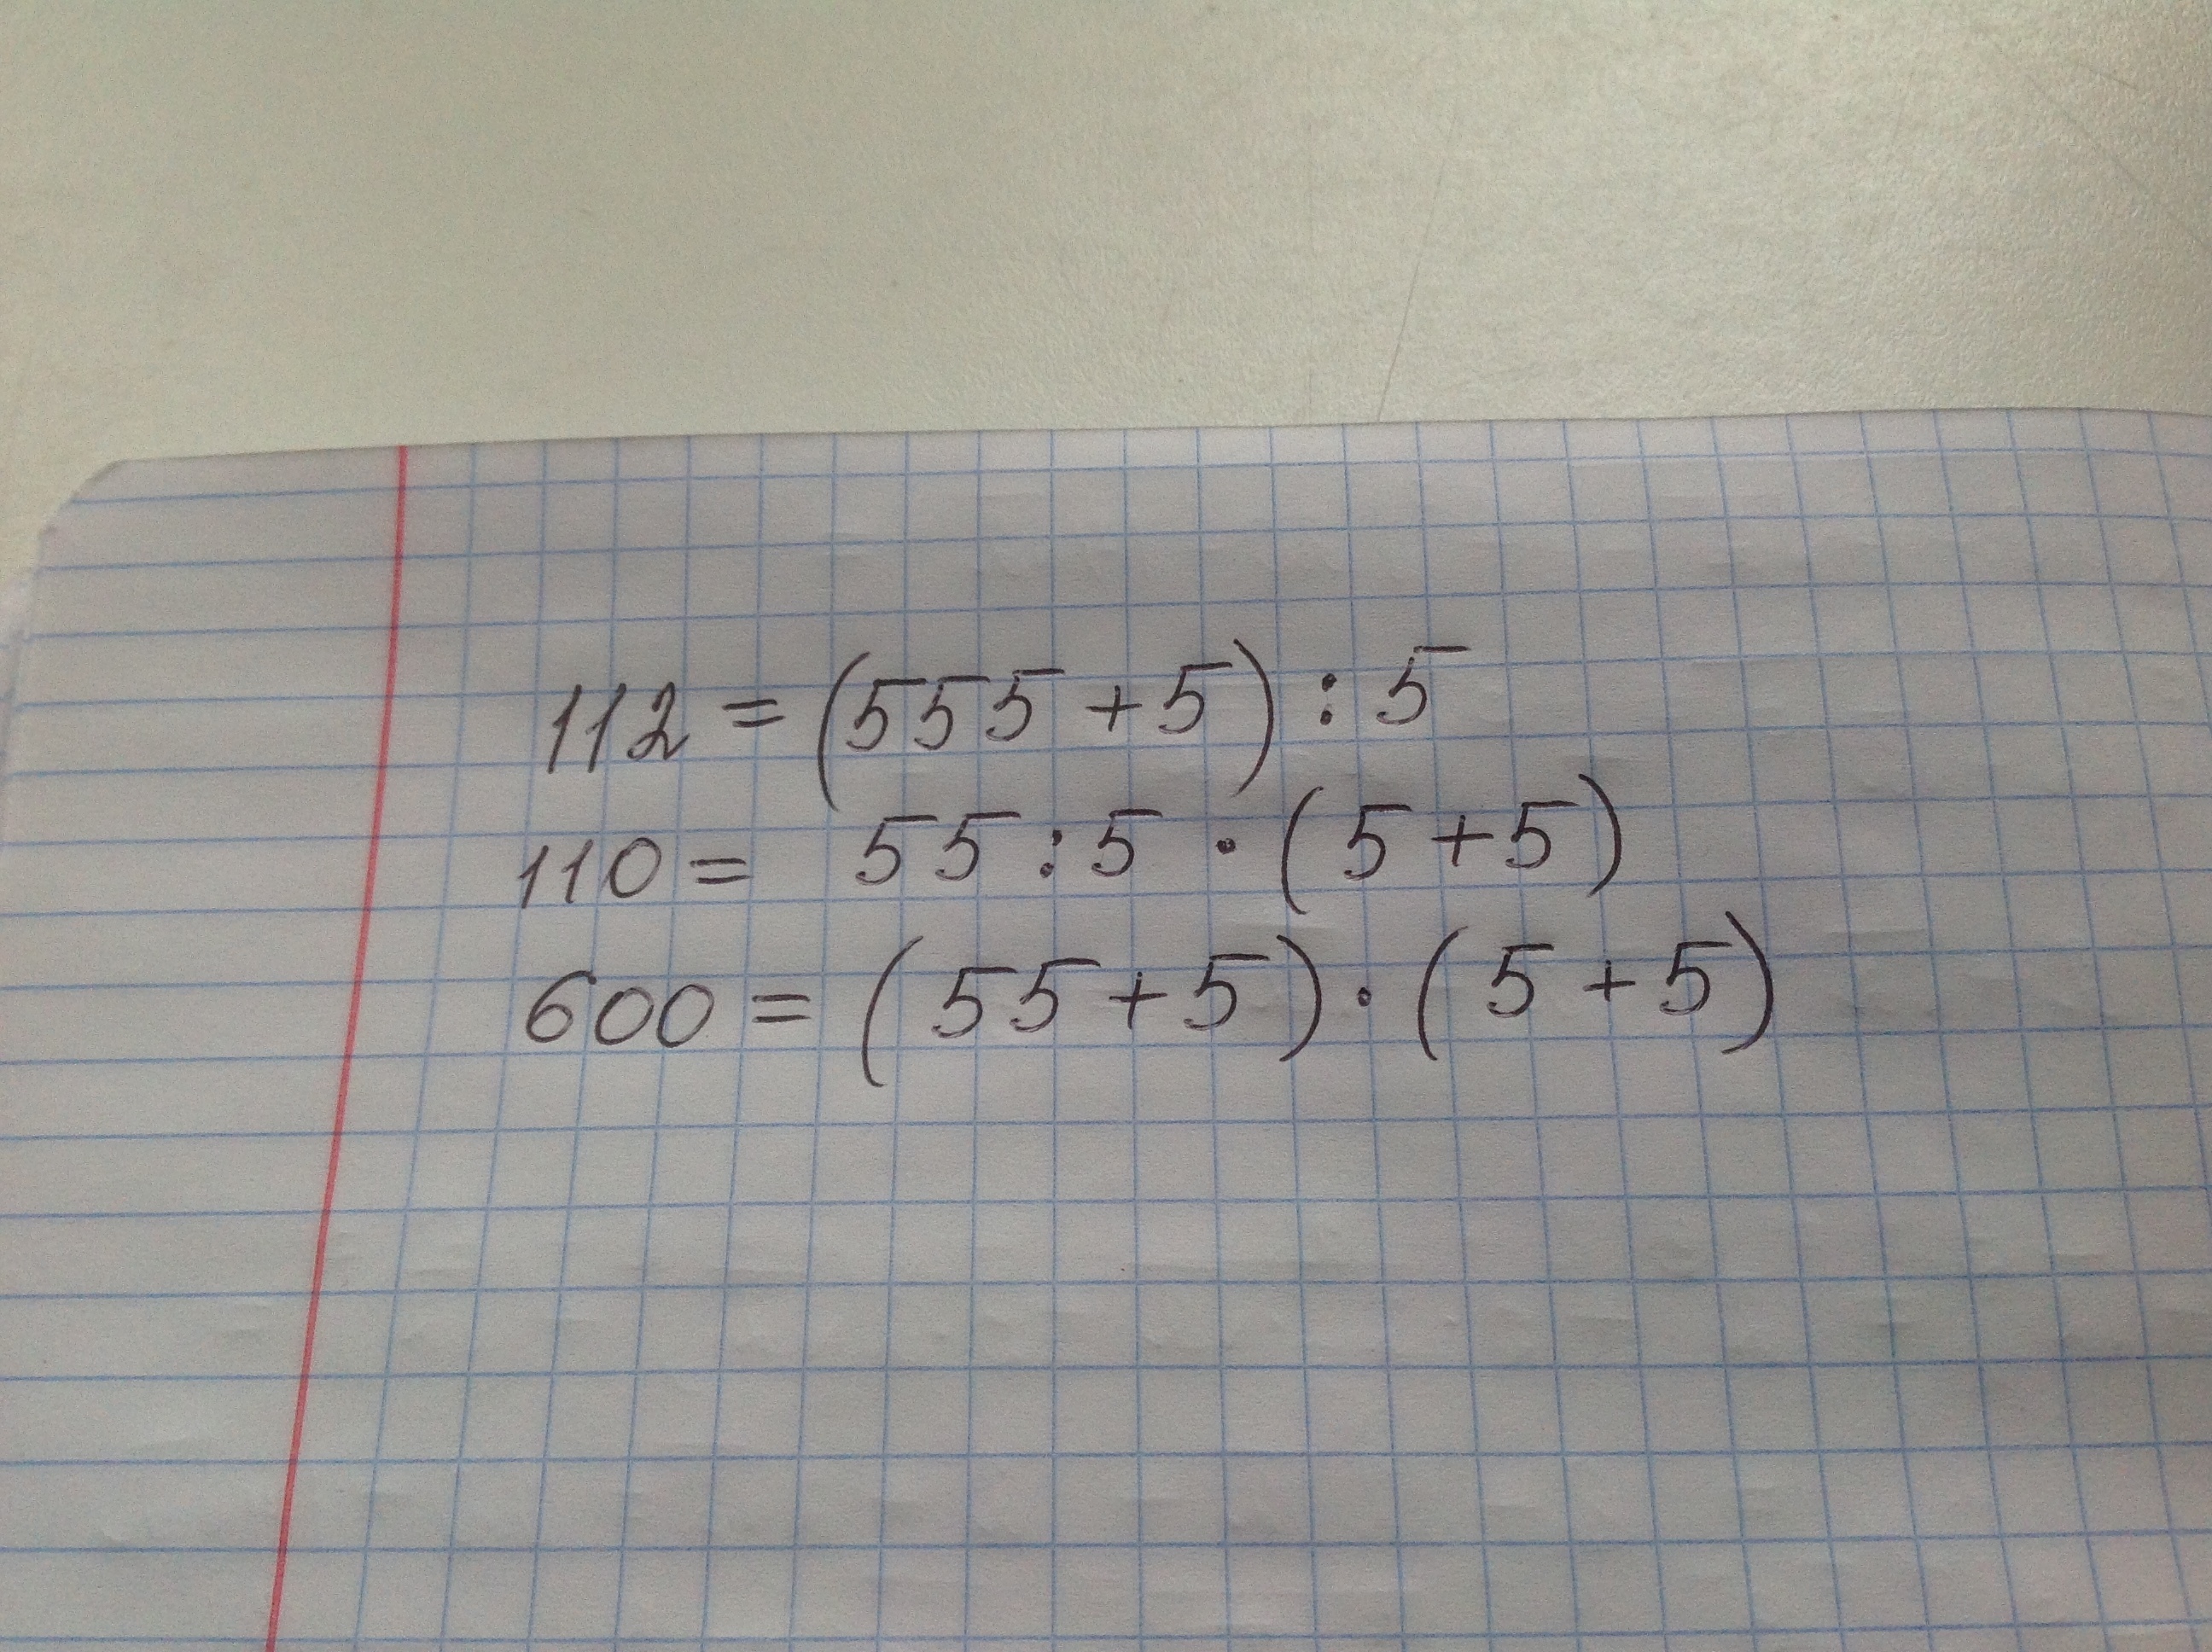 112 = (555 + 5) : 5
110 = 55 : 5 · (5 + 5)
600 = (55 + 5) · (5 + 5)